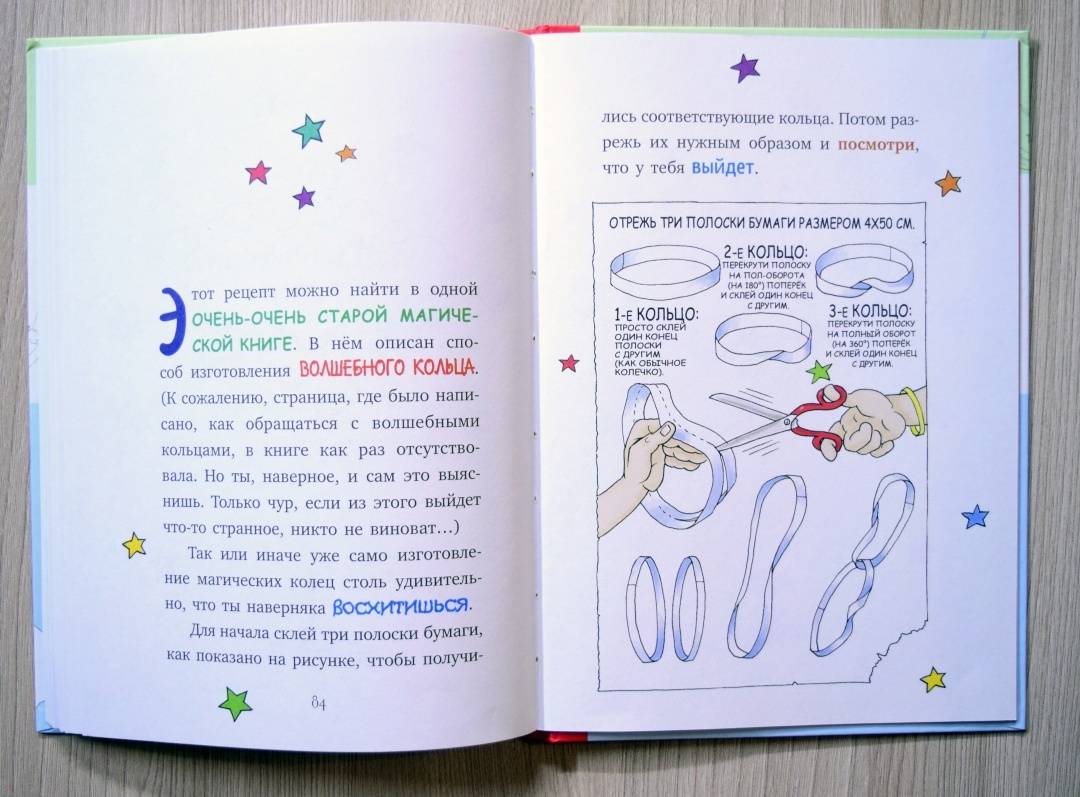 Этот рецепт можно найти в одной
ОЧЕНЬ-ОЧЕНЬ СТАРОЙ МАГИЧЕ-
СКОЙ КНИГЕ. В нём описан спо-
соб изготовления ВОЛШЕБНОГО КОЛЬЦА.
(К сожалению, страница, где было напи-
сано, как обращаться с волшебными
кольцами, в книге как раз отсутство-
вала. Но ты, наверное, и сам это выяс-
нишь. Только чур, если из этого выйдет
что-то странное, никто не виноват...)
Так или иначе уже само изготовле-
ние магических колец столь удивитель-
но, что ты наверняка ВОСХИТИШЬСЯ.
Для начала склей три полоски бумаги,
как показано на рисунке, чтобы получи-
84
лись соответствующие кольца. Потом раз-
режь их нужным образом и посмотри,
что у тебя выйдет.
ОТРЕЖЬ ТРИ ПОЛОСКИ БУМАГИ РАЗМЕРОМ 4Х50 СМ.
1-Е КОЛЬЦО:
ПРОСТО СКЛЕЙ
ОДИН КОНЕЦ
ПОЛОСКИ
С ДРУГИМ
(КАК ОБЫЧНОЕ
КОЛЕЧКО).
2-Е КОЛЬЦО:
ПЕРЕКРУТИ ПОЛОСКУ
НА ПОЛ-ОБОРОТА
(НА 180°) ПОПЕРЁК
И СКЛЕЙ ОДИН КОНЕЦ
С ДРУГИМ.
3-Е КОЛЬЦО:
ПЕРЕКРУТИ ПОЛОСКУ
НА ПОЛНЫЙ ОБОРОТ
(НА 360°) ПОПЕРЁК
И СКЛЕЙ ОДИН КОНЕЦ
С ДРУГИМ.